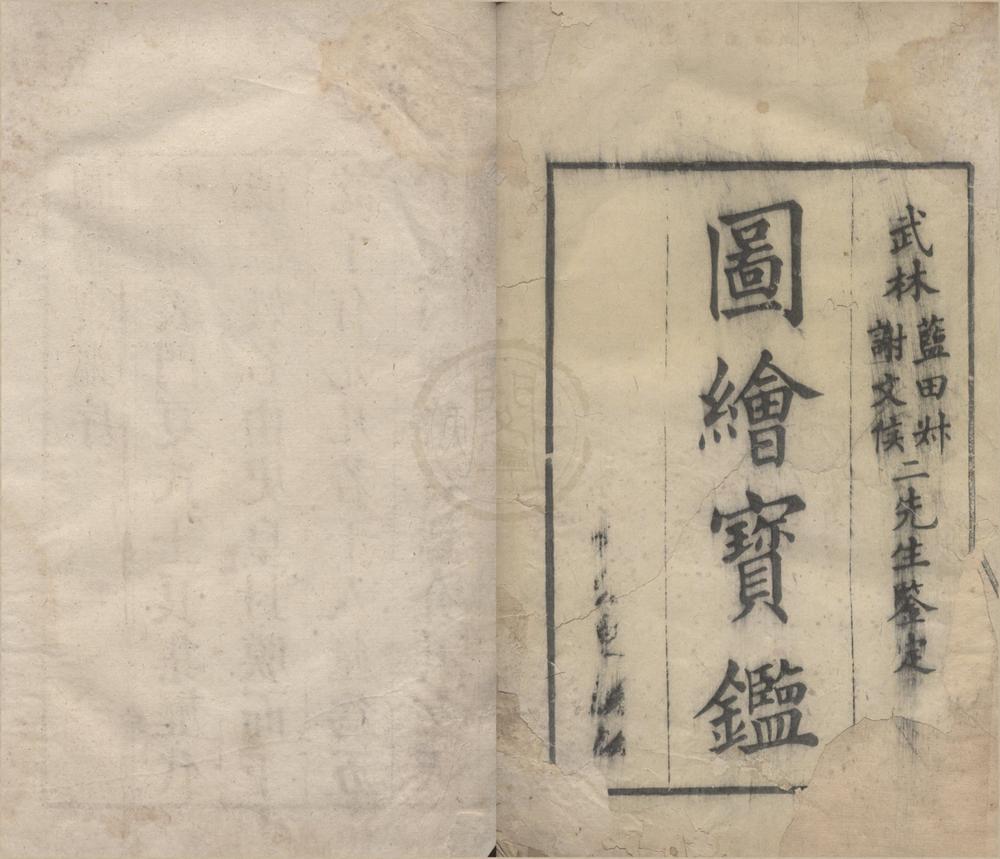 武林
藍田叔
謝文侯
二先生鑒定
圖繪寶鑑